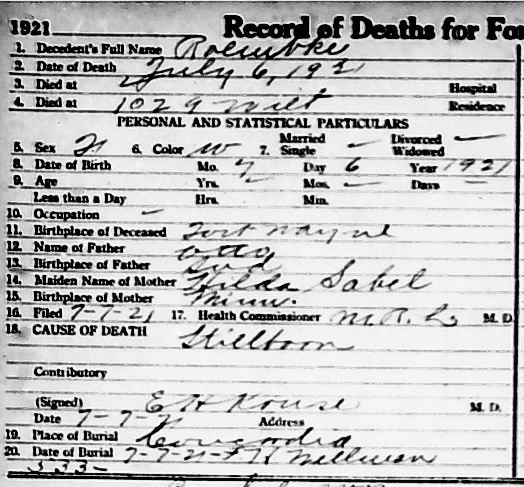 1921 Record of Deaths for For
1. Decedent's Full Name Roembke
2. Date of Death July 6, 1921
3. Died at Hospital
4. Died at 1029 Wilt Residence
PERSONAL AND STATISTICAL PARTICULARS
5. Sex F 6. Color W 7. Married Single Divorced Widowed —
8. Date of Birth Mo. 7 Day 6 Year 1921
9. Age Yrs. — Mos. — Days —
Less than a Day Hrs. Min.
10. Occupation —
11. Birthplace of Deceased Fort Wayne
12. Name of Father Otto
13. Birthplace of Father Ind
14. Maiden Name of Mother Hilda Sabel
15. Birthplace of Mother Minn.
16. Filed 7-7-21 17. Health Commissioner M.R.L. M. D.
18. CAUSE OF DEATH Stillborn
Contributory
(Signed) E H Kruse M. D.
Date 7-7-21 Address
19. Place of Burial Concordia
20. Date of Burial 7-7-21-
333-